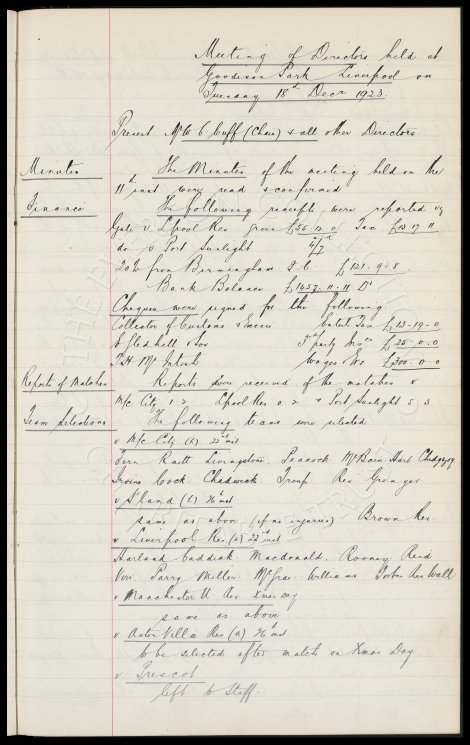 Meeting of Directors held at
Goodison Park Liverpool on
Tuesday 18th Decr 1923.
Present Mr W. C. Cuff (Chair) & all other Directors
Minutes
The Minutes of the meeting held on the
11th inst were read & confirmed
Finance
The following receipts were reported viz
Gate v. Lpool Res gross £55.12.0 Tax £13.17.11
do v Port Sunlight 4/7d
20% from Birmingham F.C. £121.9.8
Bank Balance £1457.11.11 Dr
Cheques were signed for the following
Collector of Customs & Excise Entert Tax £13-19-0
& Son 3rd party Insce £25.0.0
Wages &c £300.0.0
Reports of Matches
Reports were received of the matches v
M/c City 1-2 Lpool Res 0-2 & Port Sunlight 5-3
Team Selections
The following teams were selected
v M/c City (h) 22nd inst
Fern Raitt Livingstone. Peacock McBain Hart Chedgzoy
Irvine Cock Chadwick Troup Res Grainger
v S'land (h) 26th inst
same as above (if no injuries) Brown Res.
v Liverpool Res (a) 22nd inst
Harland Caddick Macdonald. Rooney Reid
Virr Parry Miller McGrae Williams Forbes Res Wall
v Manchester U. Res Xmas Day
same as above
v Aston Villa Res (a) 26th inst
to be selected after match on Xmas Day
v Prescot
left to Staff.